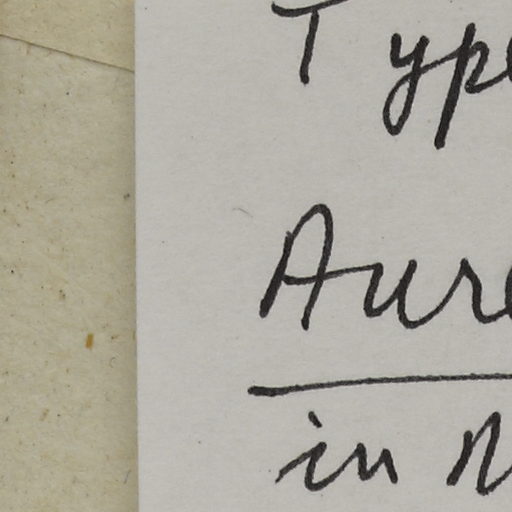 Type
Aure
in